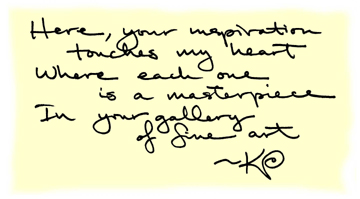 Here, your inspiration
touches my heart
Where each one
is a masterpiece
In your gallery
of fine art
~KP